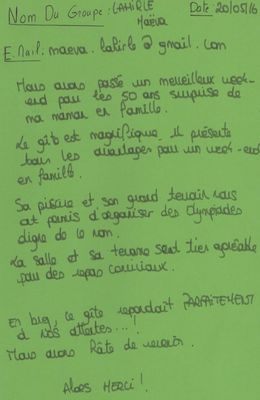 Nom Du Groupe : LAHIRLE Date : 20/05/16
Maëva
E.Mail : maeva.lahirle@gmail.com
Nous avons passé un merveilleux week-
end pour les 50 ans surprise de
ma maman en famille.
Le gîte est magnifique il présente
tous les avantages pour un week-end
en famille.
Sa piscine et son grand terrain nous
ont permis d'organiser des Olympiades
digne de ce nom.
La salle et sa terrasse sont très agréable
pour des repas conviviaux.
En bref, ce gîte répondait PARFAITEMENT
à nos attentes...!
Nous avons hâte de revenir.
Alors MERCI !